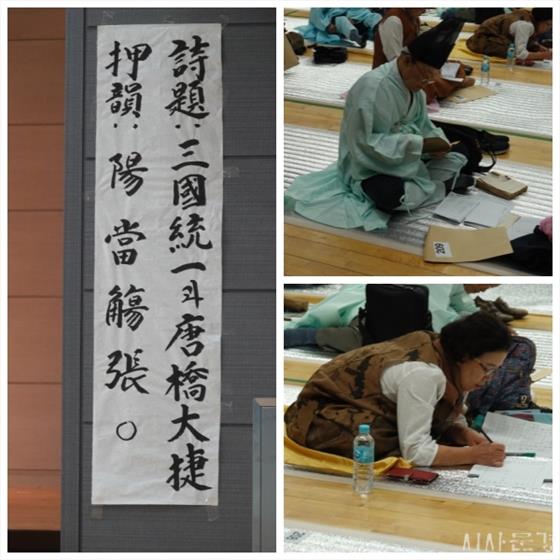 詩題: 三國統一과唐橋大捷
押韻: 陽 當 觴 張 ○
209
시사문경